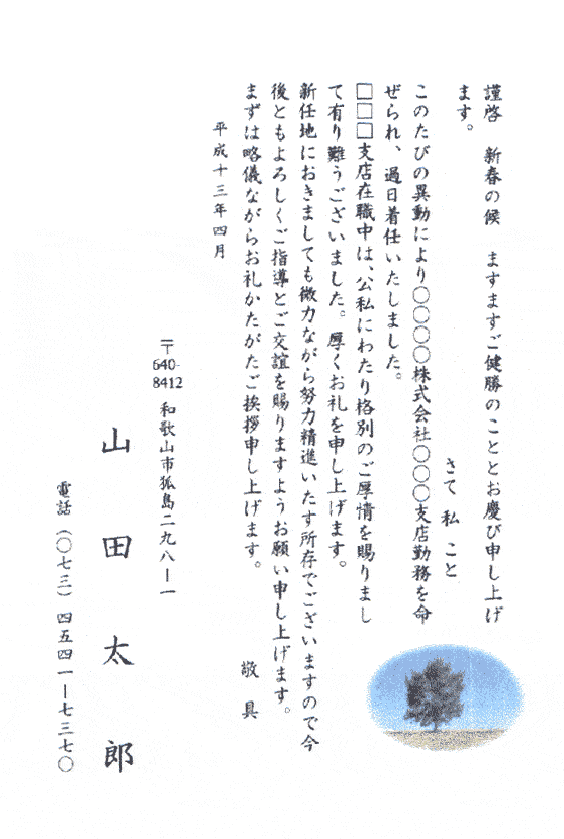 謹啓　新春の候　ますますご健勝のこととお慶び申し上げ
ます。
さて　私　こと
このたびの異動により〇〇〇〇株式会社〇〇〇支店勤務を命
ぜられ、過日着任いたしました。
□□□支店在職中は、公私にわたり格別のご厚情を賜りまし
て有り難うございました。厚くお礼を申し上げます。
新任地におきましても微力ながら努力精進いたす所存でございますので今
後ともよろしくご指導とご交誼を賜りますようお願い申し上げます。
まずは略儀ながらお礼かたがたご挨拶申し上げます。
敬　具
平成十三年四月
〒640-8412　和歌山市狐島二九八ー一
山田太郎
電話（〇七三）四五四一ー七三七〇